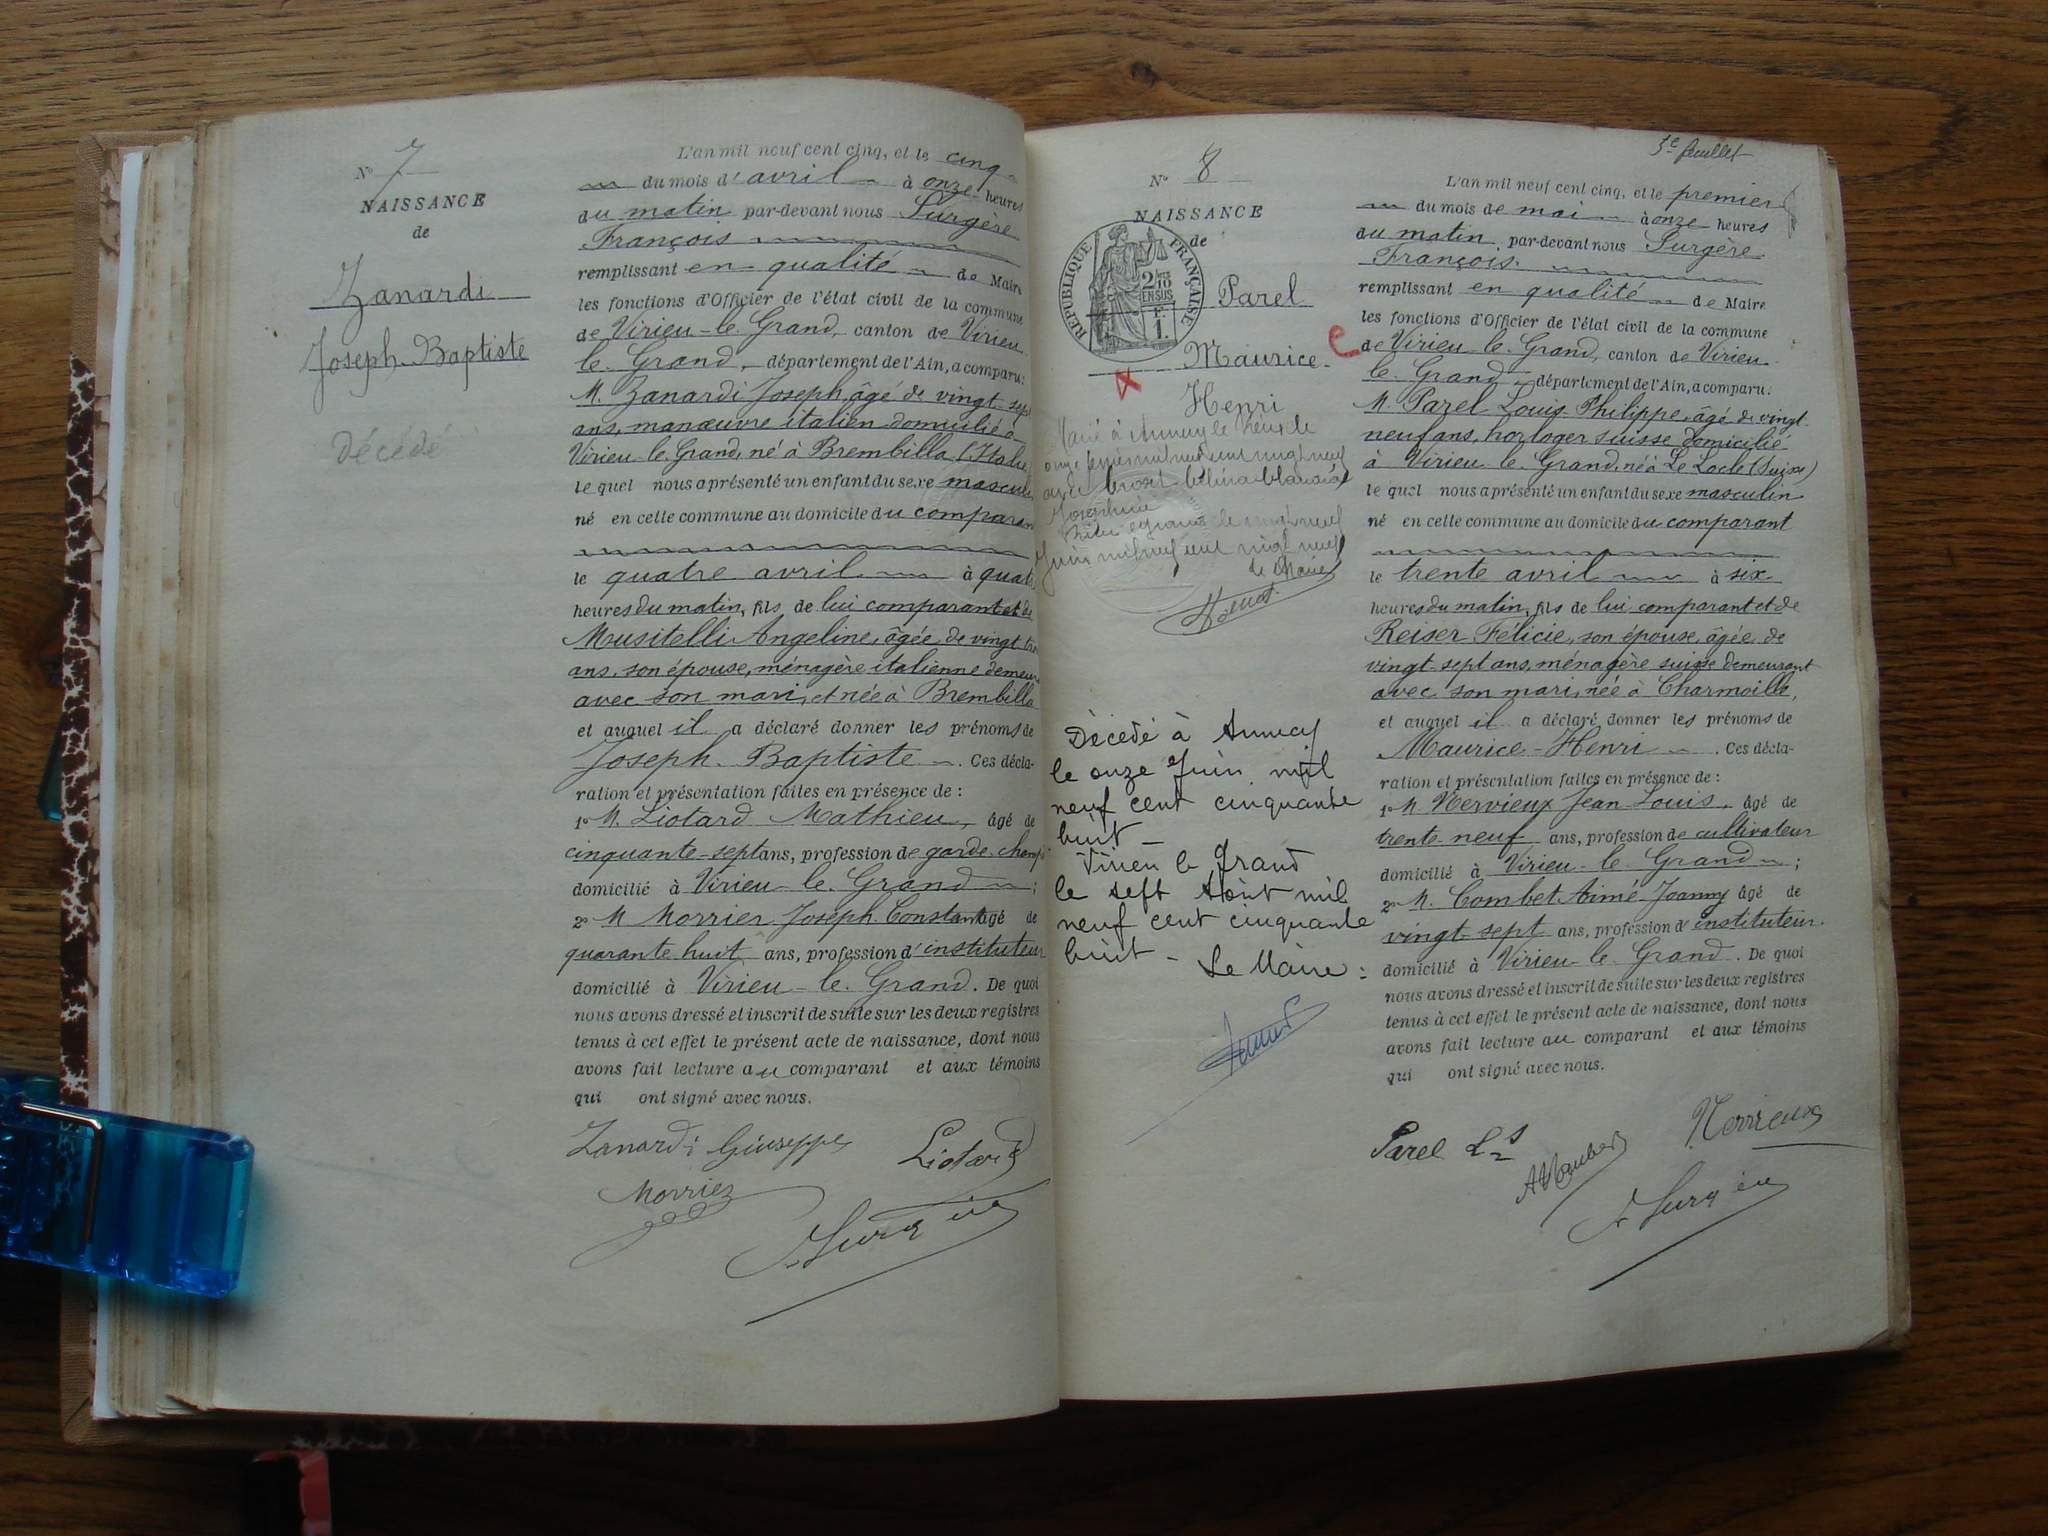 N° 7
NAISSANCE
de
Zanardi
Joseph-Baptiste
Décédé
L'an mil neuf cent cinq, et le cinq
du mois d'avril à onze heures
du matin par-devant nous Surgère
François
remplissant en qualité de Maire
les fonctions d'Officier de l'état civil de la commune
de Virieu-le-Grand, canton de Virieu
le Grand, département de l'Ain, a comparu:
M. Zanardi Joseph, âgé de vingt-sept
ans, manœuvre italien domicilié à
Virieu-le-Grand, né à Brembilla (Italie
le quel nous a présenté un enfant du sexe masculin
né en cette commune au domicile du comparant
le quatre avril à quatre
heures du matin, fils de lui comparant et de
Musitelli Angeline, âgée de vingt
ans, son épouse, ménagère italienne demeurant
avec son mari, et née à Brembilla
et auquel il a déclaré donner les prénoms de
Joseph-Baptiste. Ces décla-
ration et présentation faites en présence de :
1° M. Liotard Mathieu, âgé de
cinquante-sept ans, profession de garde champ
domicilié à Virieu-le-Grand ;
2° M Morrier Joseph Constant âgé de
quarante huit ans, profession d'instituteur
domicilié à Virieu-le-Grand. De quoi
nous avons dressé et inscrit de suite sur les deux registres
tenus à cet effet le présent acte de naissance, dont nous
avons fait lecture au comparant et aux témoins
qui ont signé avec nous.
Zanardi Giuseppe Liotard
Morrier
Surgère
5e feuillet
N° 8
NAISSANCE
de
RÉPUBLIQUE FRANÇAISE
2/10
EN SUS
F.
1
Parel
Maurice-
Henri
Marié à Annecy le
onze mil neuf cent vingt neuf
avec
Joséphine
Virieu le Grand le vingt neuf
Juin mil neuf cent vingt neuf
le Maire
Décédé à Annecy
le onze Juin mil
neuf cent cinquante
huit
Virieu le Grand
le sept Août mil
neuf cent cinquante
huit - Le Maire :
L'an mil neuf cent cinq, et le premier
du mois de mai à onze heures
du matin par-devant nous Surgère
François
remplissant en qualité de Maire
les fonctions d'Officier de l'état civil de la commune
de Virieu-le-Grand, canton de Virieu
le Grand département de l'Ain, a comparu:
M. Parel Louis Philippe, âgé de vingt
neuf ans, horloger suisse domicilié
à Virieu-le-Grand, né à Le Locle (Suisse)
le quel nous a présenté un enfant du sexe masculin
né en cette commune au domicile du comparant
le trente avril à six
heures du matin, fils de lui comparant et de
Reiser Félicie, son épouse, âgée de
vingt-sept ans, ménagère suisse demeurant
avec son mari, née à Charmoille,
et auquel il a déclaré donner les prénoms de
Maurice-Henri. Ces décla-
ration et présentation faites en présence de :
1° M Nervieux Jean-Louis, âgé de
trente neuf ans, profession de cultivateur
domicilié à Virieu-le-Grand ;
2° M. Combet Aimé-Joanny âgé de
vingt-sept ans, profession d'instituteur
domicilié à Virieu-le-Grand. De quoi
nous avons dressé et inscrit de suite sur les deux registres
tenus à cet effet le présent acte de naissance, dont nous
avons fait lecture au comparant et aux témoins
qui ont signé avec nous.
Parel Ls Nervieux
Surgère